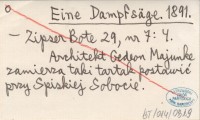 Eine Dampfsäge. 1891.
— Zipser Bote 29, nr 7: 4.
Architekt Gedeon Majunke
zamierza taki tartak postawić
przy Spiskiej Sobocie.